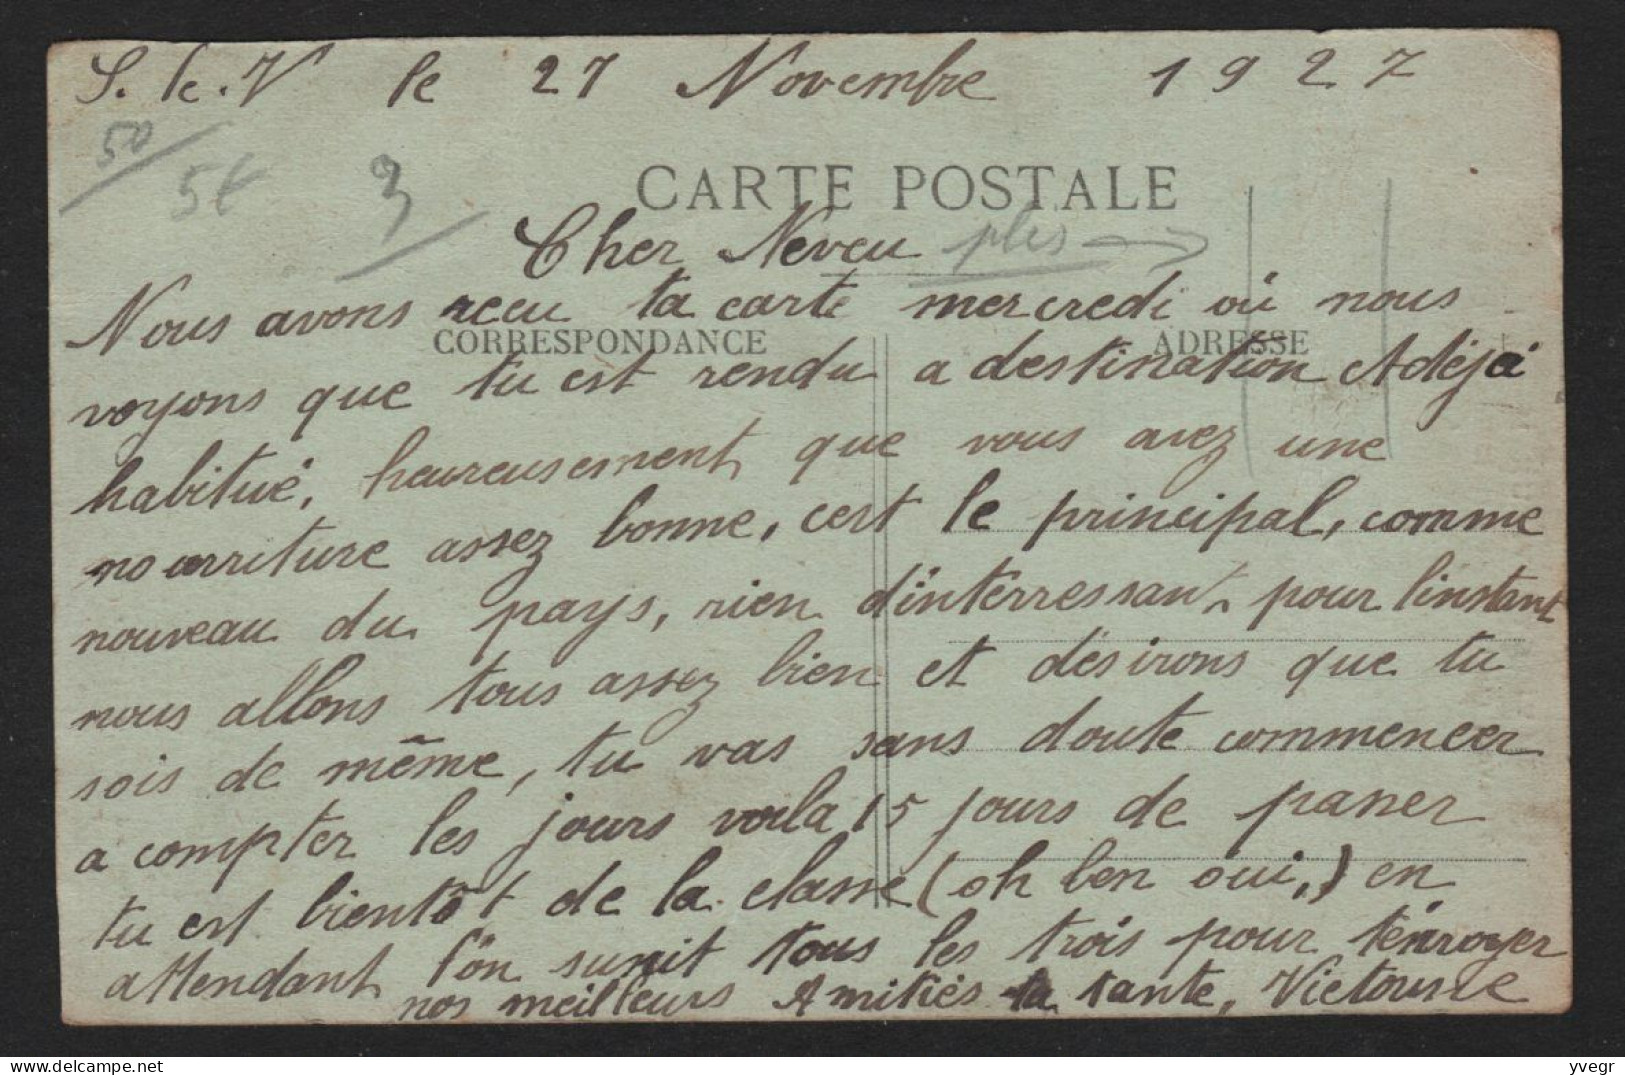 S. le. V le 27 Novembre 1927
50
5€
3
CARTE POSTALE
Cher Neveu plis
Nous avons reçu ta carte mercredi où nous
CORRESPONDANCE ADRESSE
voyons que tu est rendu a destination et déjà
habitué, heureusement que vous avez une
nourriture assez bonne, cest le principal, comme
nouveau du pays, rien d'intérressant pour l'instant
nous allons tous assez bien et désirons que tu
sois de même, tu vas sans doute commencer
a compter les jours voila 15 jours de passer
tu est bientôt de la classe (oh ben oui,) en
attendant l'on sunit tous les trois pour t'envoyer
nos meilleurs Amitiés ta tante, Victousse
yvegr